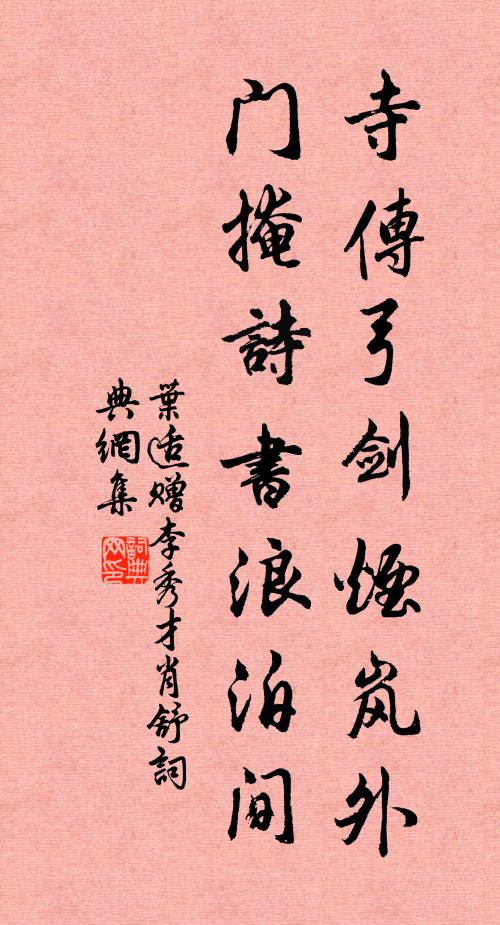 寺傳弓剑煙岚外
门掩詩書浪泊间
葉适赠李秀才肖舒詞
典網集
詞典
网印